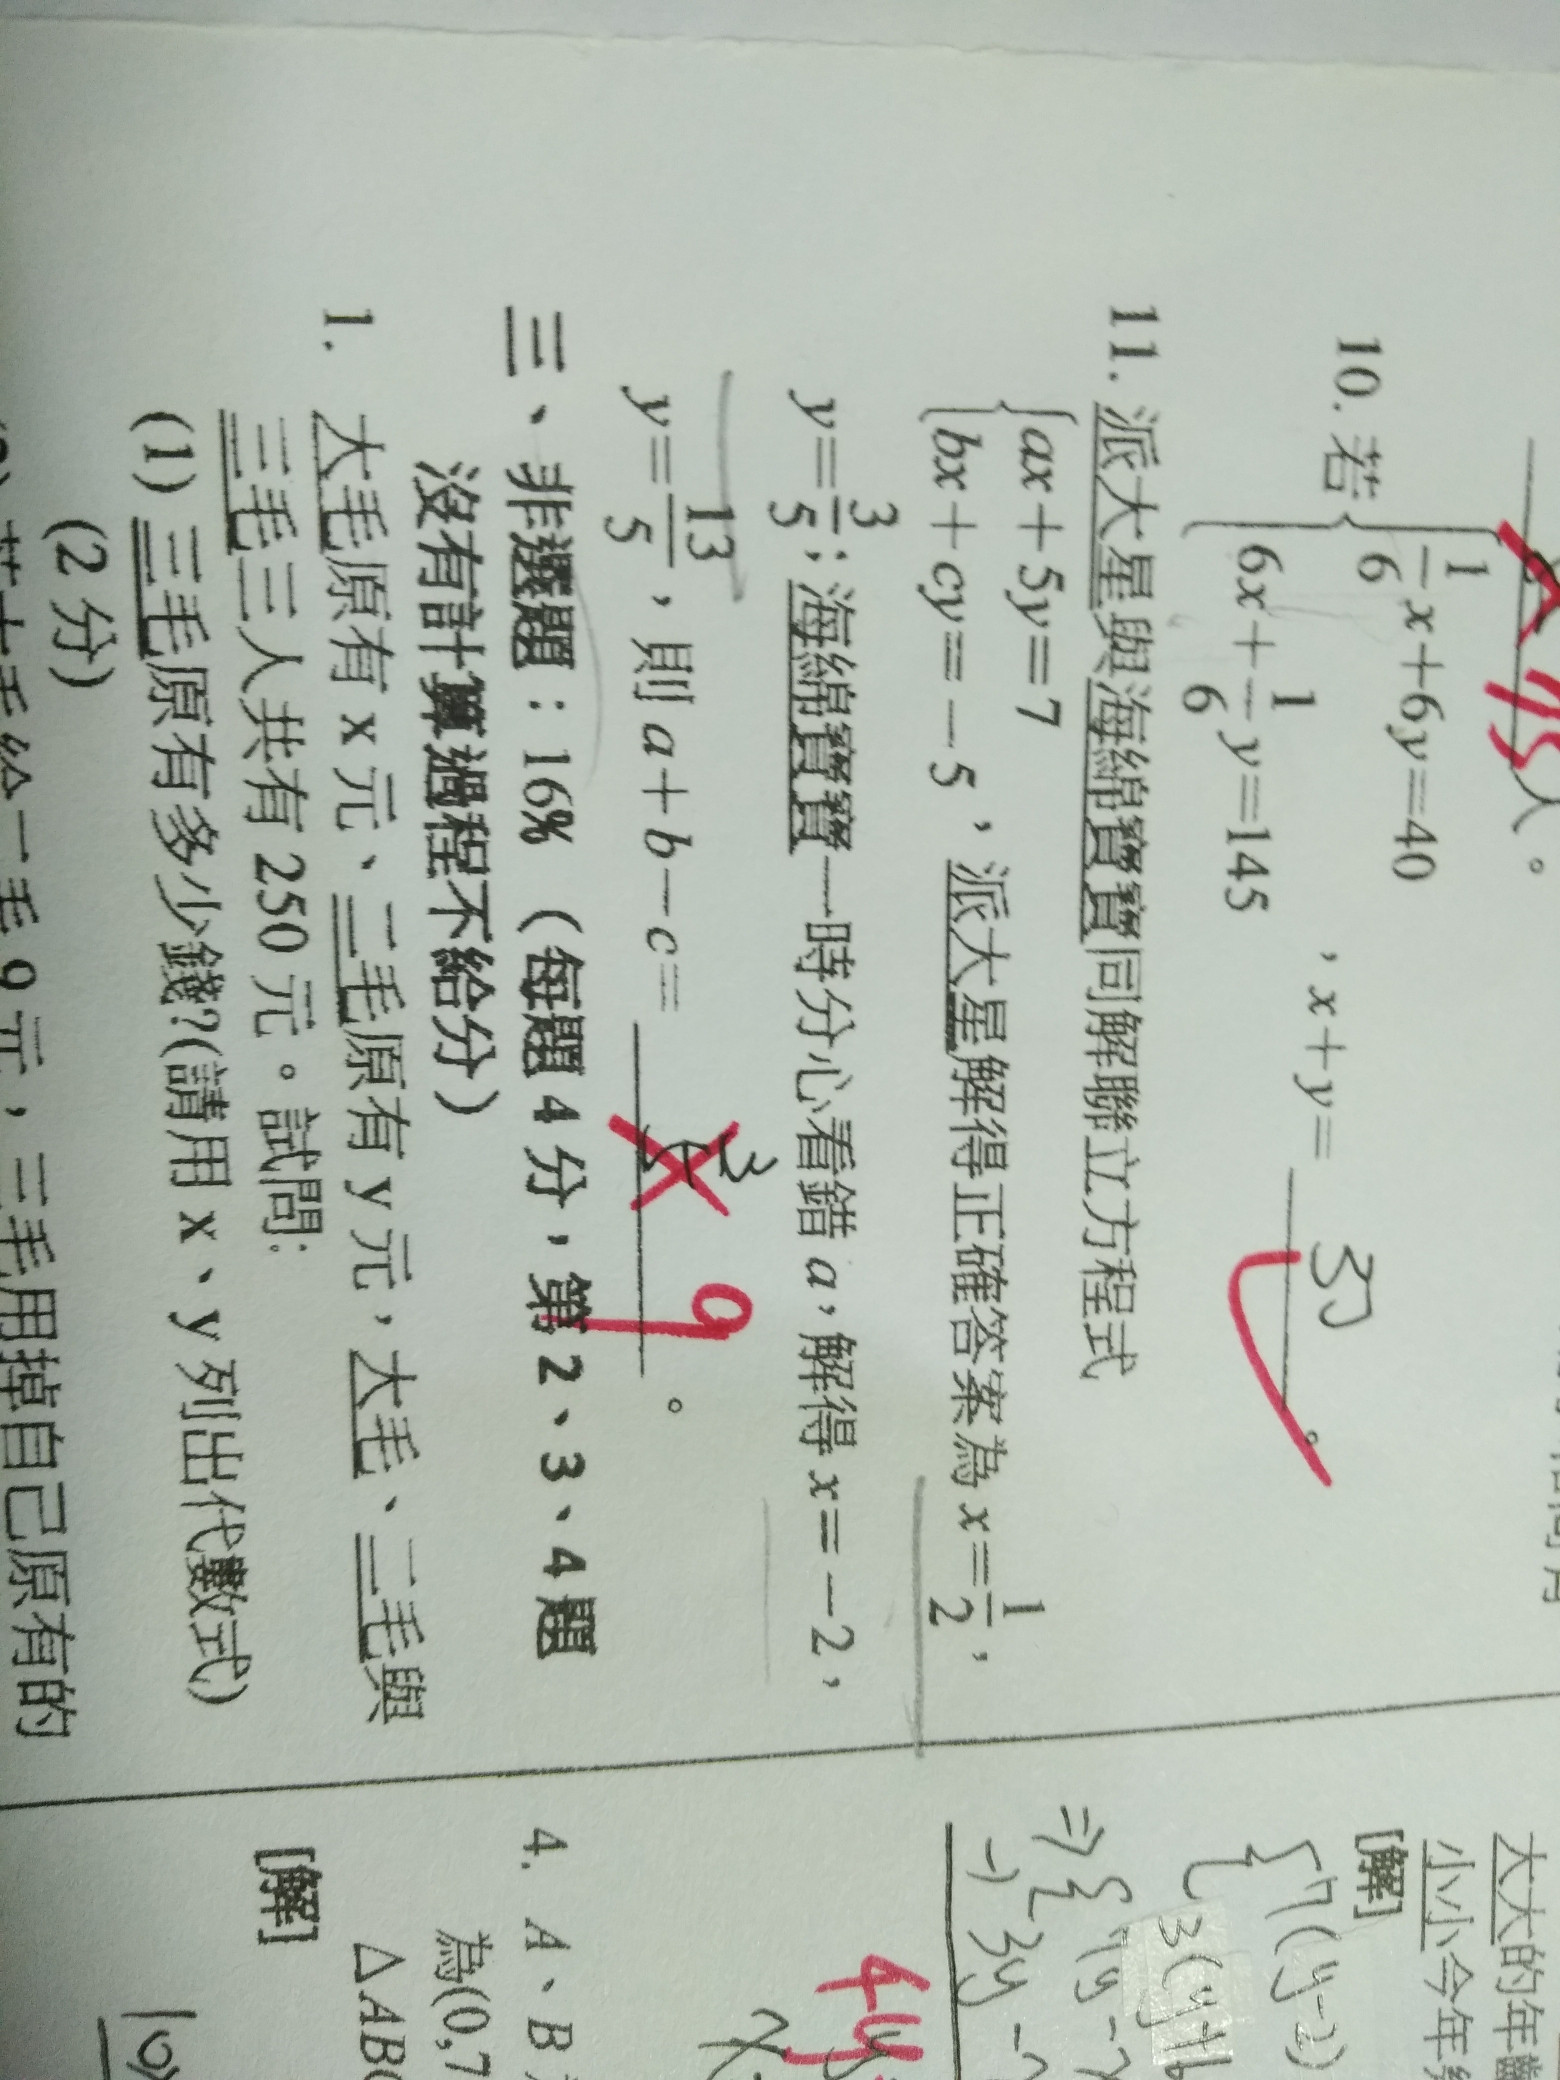 人。
10. 若{1/6 x+6y=40
6x+1/6 y=145 ,x+y= 37 。
11. 派大星與海綿寶寶同解聯立方程式
{ax+5y=7
bx+cy=-5 ,派大星解得正確答案為 x=1/2,
y=3/5;海綿寶寶一時分心看錯 a,解得 x=-2,
y=13/5,則 a+b-c= 9 。
三、非選題:16% (每題 4 分,第 2、3、4 題
沒有計算過程不給分)
1. 大毛原有 x 元、二毛原有 y 元,大毛、二毛與
三毛三人共有 250 元。試問:
(1) 三毛原有多少錢?(請用 x、y 列出代數式)
(2 分)
三毛用掉自己原有的
大大的年齡
小小今年
[解]
{7(y-2)
3(y+6
⇒{7y-
-) 3y-
4y
4. A、B
為(0,7
△ABC
[解]